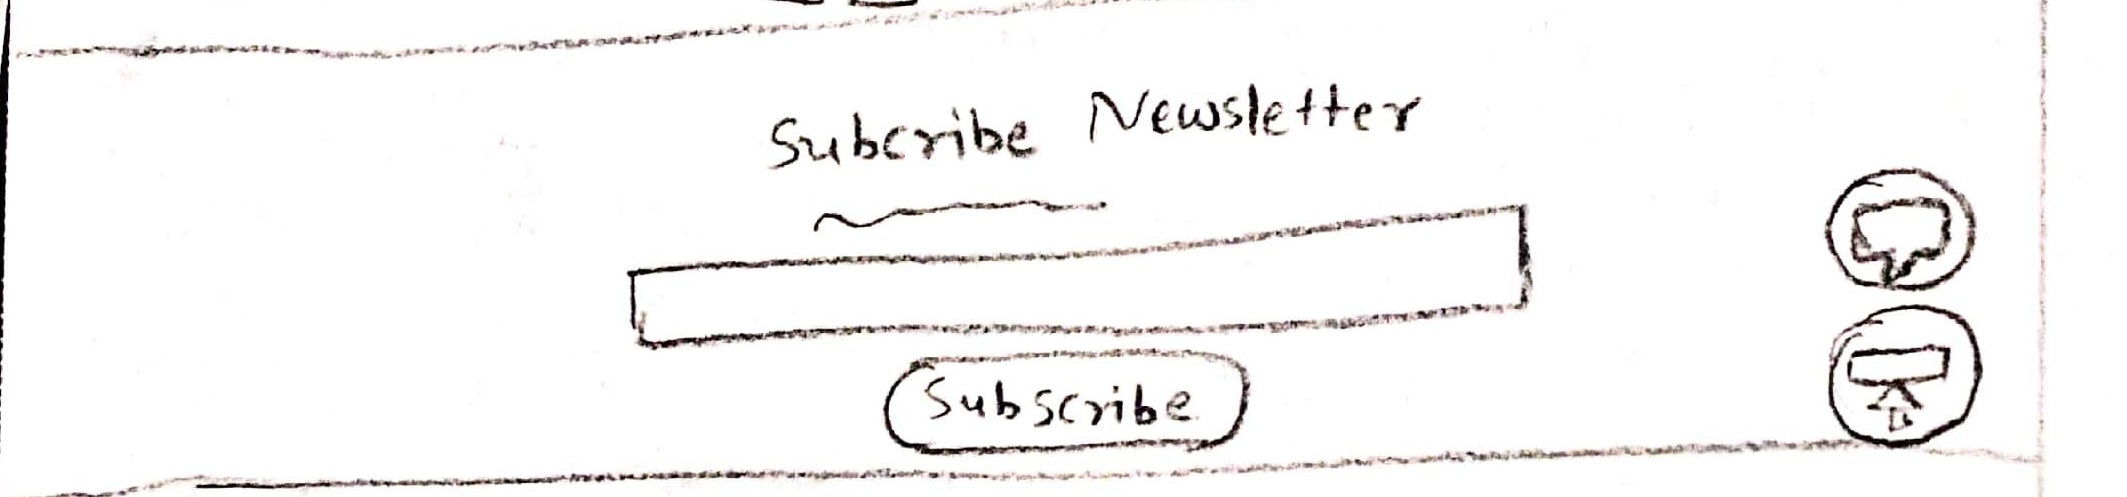 Subcribe Newsletter
Subscribe